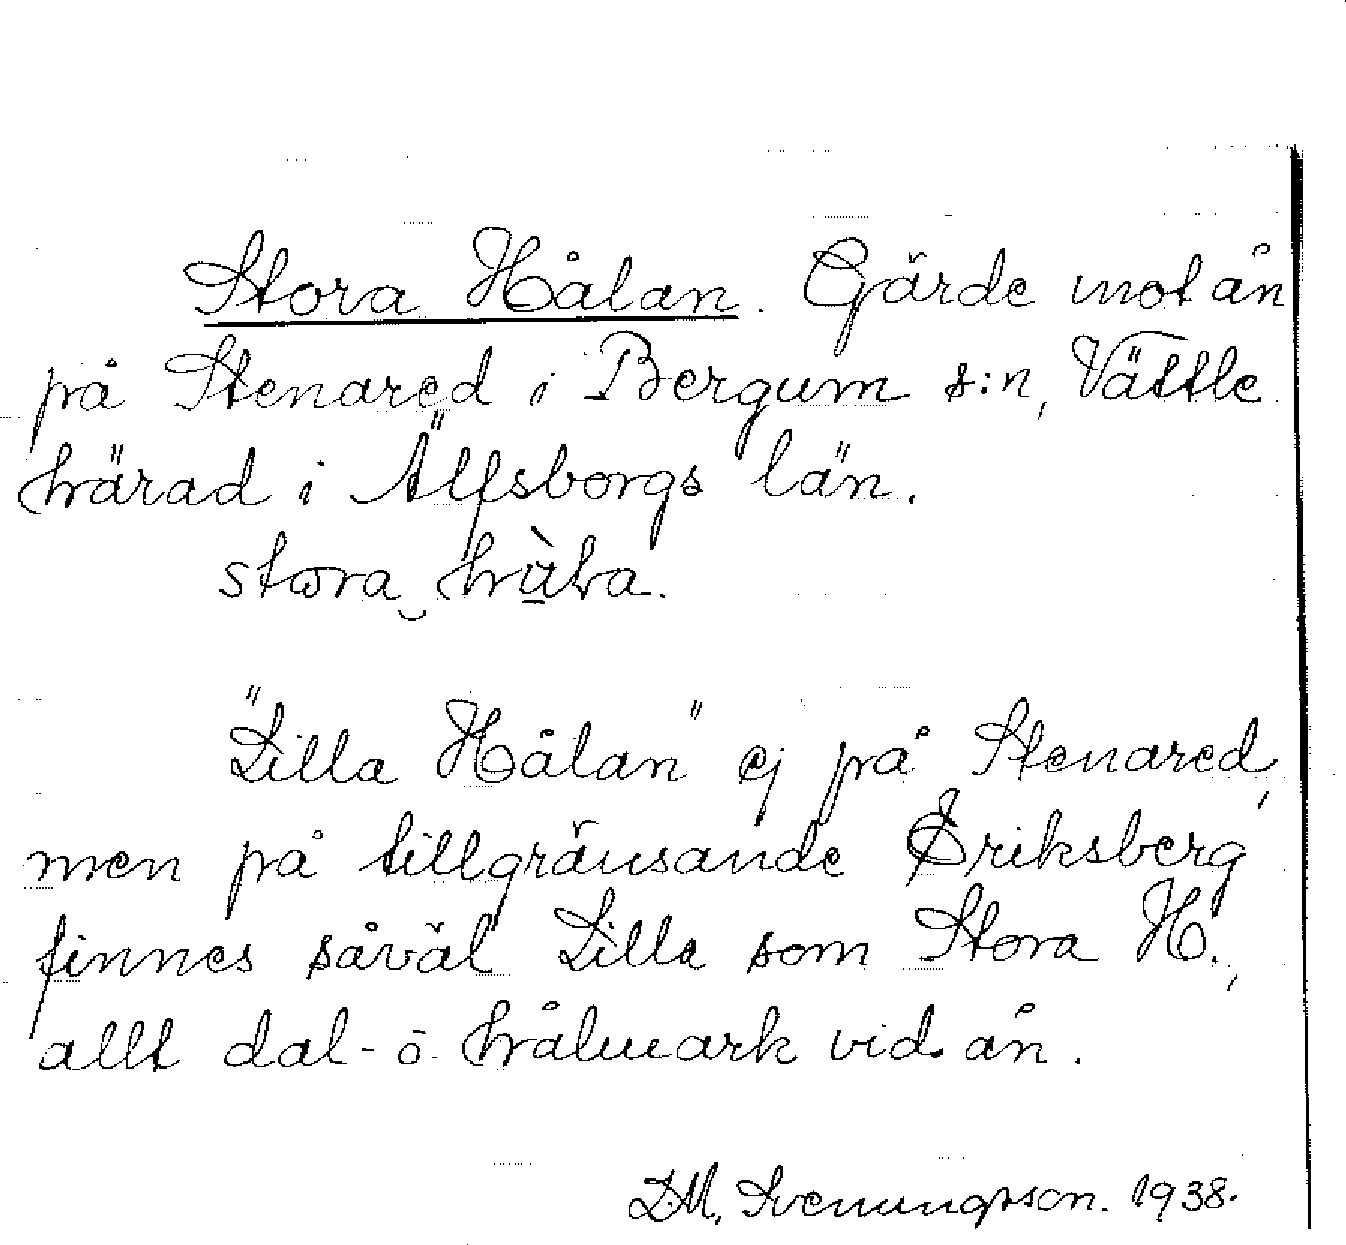 Stora Hålan. Gärde mot ån
på Stenared i Bergum s:n, Vättle
härad i Älfsborgs län.
stora hùla.
"Lilla Hålan" ej på Stenared,
men på tillgränsande Eriksberg
finnes såväl Lilla som Stora H.,
allt dal- o. hålmark vid ån.
D.M. Svenungsson. 1938.